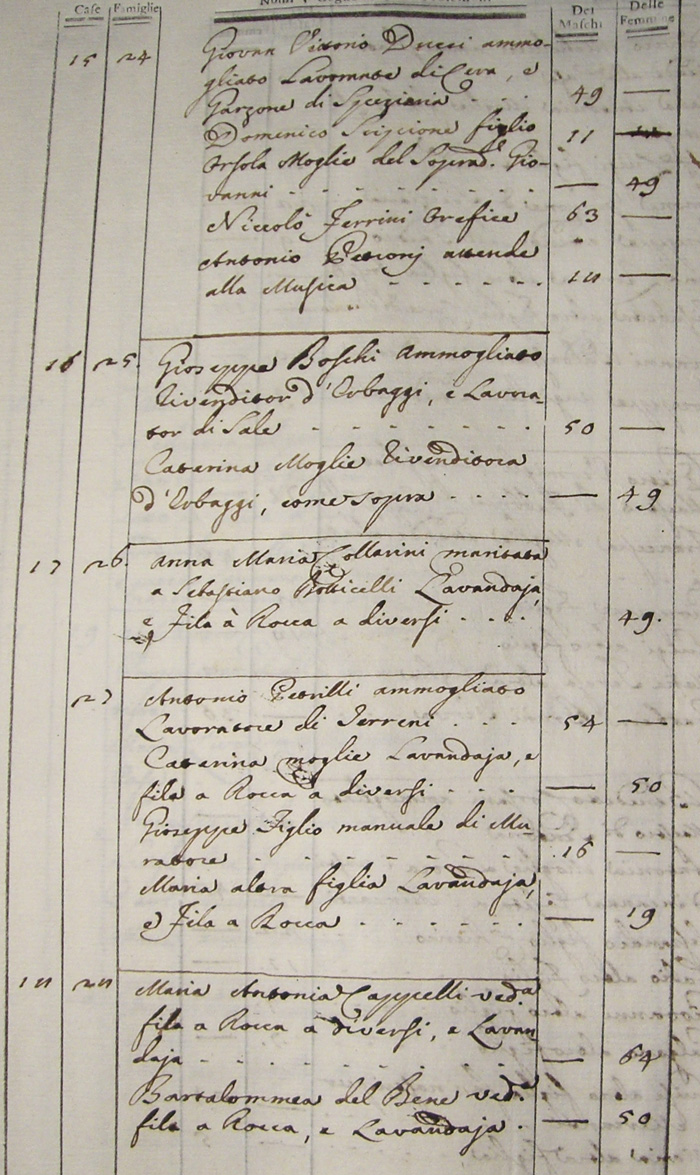 Case Famiglie Dei Maschi Delle Femmine
15 24 Giovan Vittorio Ducci ammo-
gliato Lavorante di Cera, e
Garzone di Spezieria - - - 49 —
Domenico Scipione figlio 11
Orsola Moglie del Soprad. Gio-
vanni - - - - - — 49
Niccolò Ferrini Orefice 63 —
Antonio attende
alla Musica - - - - - 18 —
16 25 Gioseppe Boschi Ammogliato
Rivenditor d'Erbaggi, e Lavora-
tor di Sale - - - - - 50 —
Caterina Moglie Rivenditora
d'Erbaggi, come sopra - - - - — 49
17 26 Anna Maria Collarini maritata
a Sebastiano Botticelli Lavandaja,
e Fila à Rocca a diversi - - - 49.
27 Antonio Petrilli ammogliato
Lavoratore di Terreni - - - 54 —
Caterina moglie Lavandaja, e
fila a Rocca a diversi - - - — 50
Gioseppe Figlio manuale di Mu-
ratore - - - - - 16 —
Maria altra figlia Lavandaja,
e Fila a Rocca - - - - - — 19
18 28 Maria Antonia Cappelli ved.a
fila a Rocca a diversi, e Lavan
daja - - - - - — 64
Bartolommea del Bene ved.a
fila a Rocca, e Lavandaja - — 50